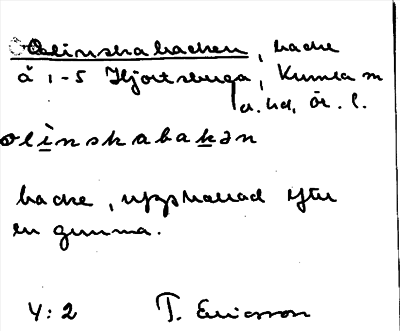 Olinskabacken, backe
å 1-5 Hjortsberga, Kumla sn
a. hd, Ör. l.
olinskabakən
backe, uppkallad efter
en gumma.
4:2 T. Ericsson